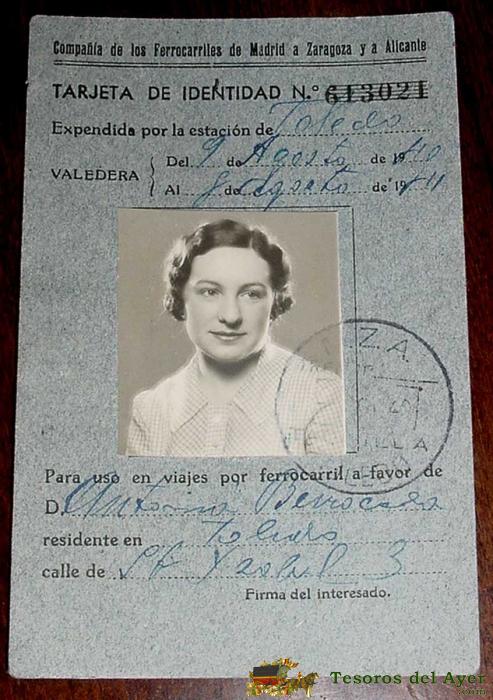 Compañía de los Ferrocarriles de Madrid a Zaragoza y a Alicante
TARJETA DE IDENTIDAD N.º 613021
Expendida por la estación de Toledo
VALEDERA
Del 9 de Agosto de 1940
Al 8 de Agosto de 1941
Z.A.
Para uso en viajes por ferrocarril a favor de
D. Antonia
residente en Toledo
calle de Sta Ysabel 3
Firma del interesado.
Tesoros del Ayer
www.tesorosdelayer.com